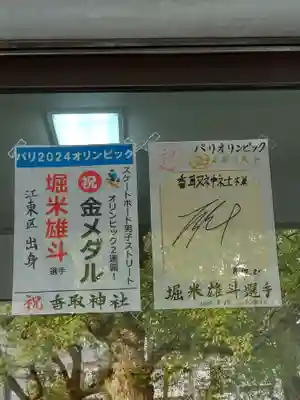 パリ2024オリンピック
スケートボード男子ストリート
オリンピック2連覇!
祝 金メダル
堀米雄斗 選手
江東区 出身
祝 香取神社
祝 パリオリンピック
香取神社 様
堀米雄斗選手